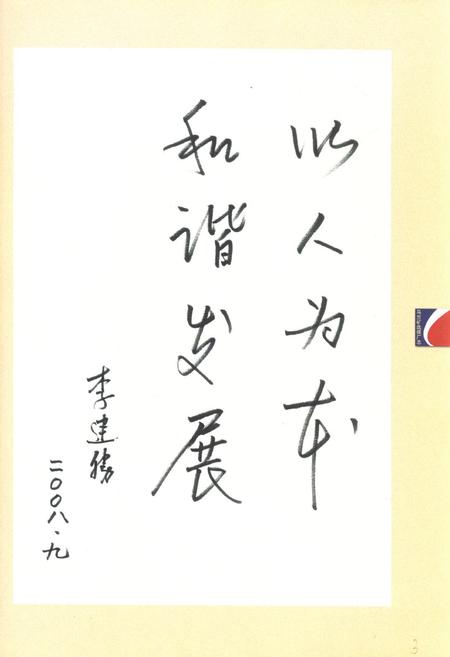 以人为本
和谐发展
李建勝
二〇〇八·九
3